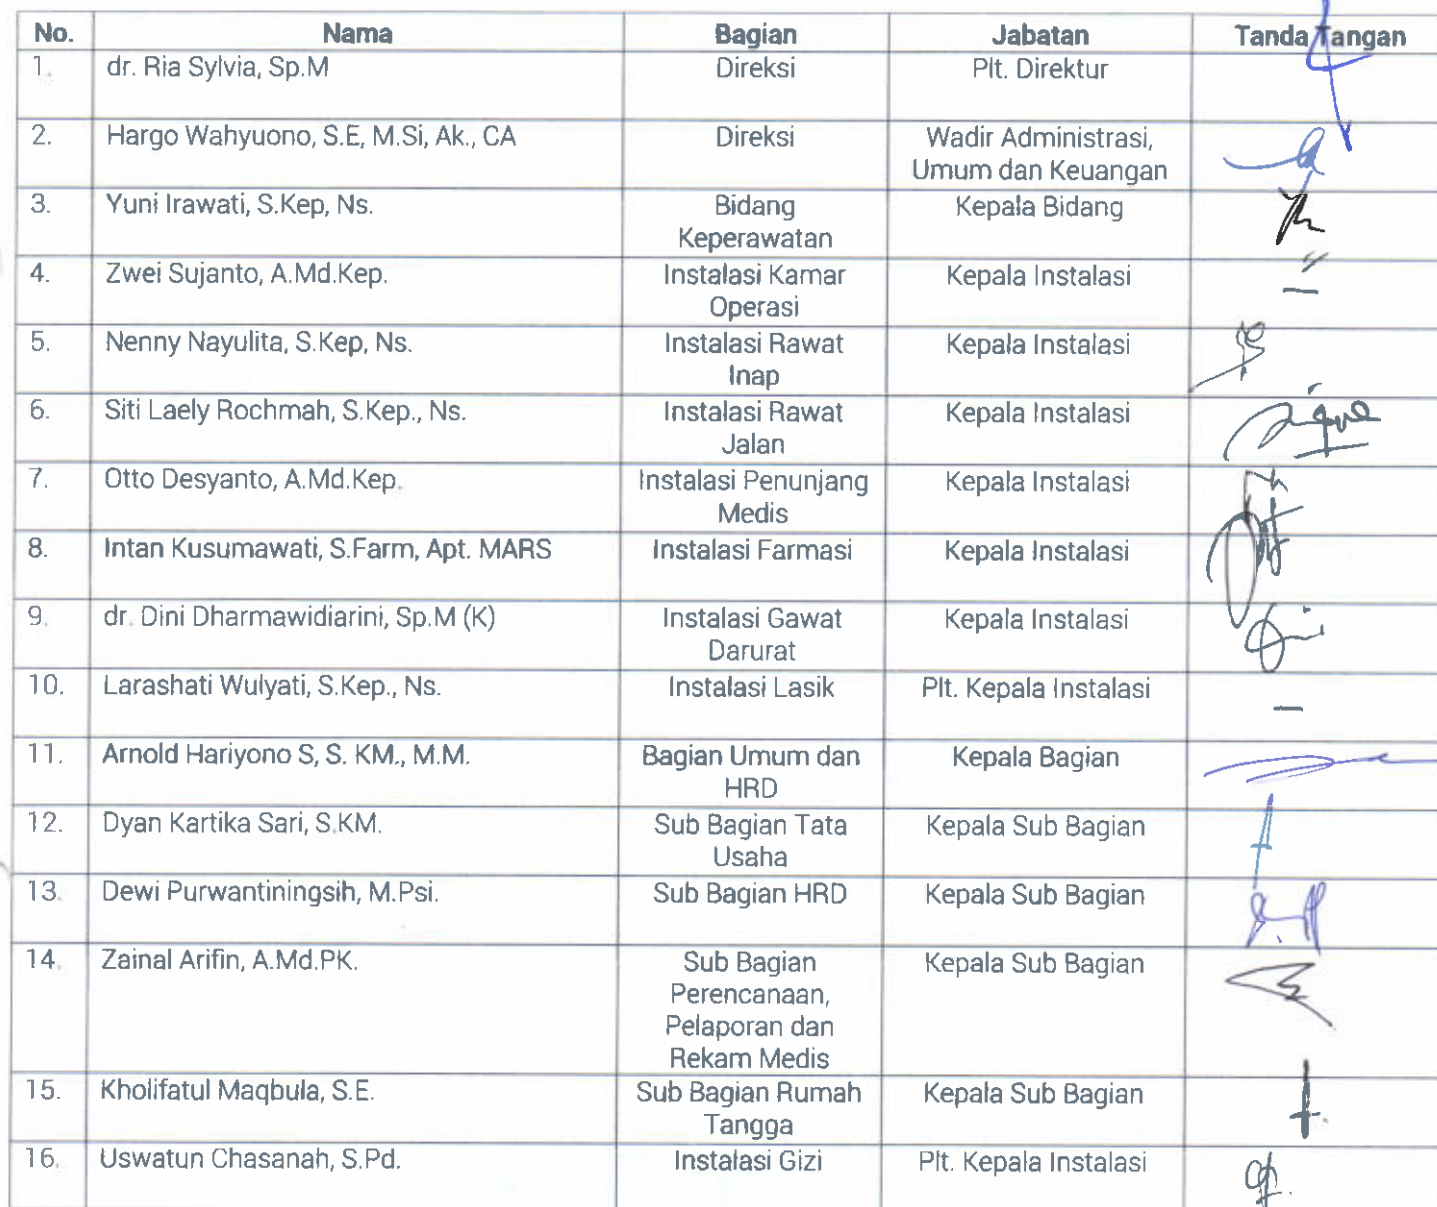 No. Nama Bagian Jabatan Tanda Tangan
1. dr. Ria Sylvia, Sp.M Direksi Plt. Direktur
2. Hargo Wahyuono, S.E, M.Si, Ak., CA Direksi Wadir Administrasi,
Umum dan Keuangan
3. Yuni Irawati, S.Kep, Ns. Bidang Kepala Bidang
Keperawatan
4. Zwei Sujanto, A.Md.Kep. Instalasi Kamar Kepala Instalasi –
Operasi
5. Nenny Nayulita, S.Kep, Ns. Instalasi Rawat Kepala Instalasi
Inap
6. Siti Laely Rochmah, S.Kep., Ns. Instalasi Rawat Kepala Instalasi
Jalan
7. Otto Desyanto, A.Md.Kep. Instalasi Penunjang Kepala Instalasi
Medis
8. Intan Kusumawati, S.Farm, Apt. MARS Instalasi Farmasi Kepala Instalasi
9. dr. Dini Dharmawidiarini, Sp.M (K) Instalasi Gawat Kepala Instalasi
Darurat
10. Larashati Wulyati, S.Kep., Ns. Instalasi Lasik Plt. Kepala Instalasi –
11. Arnold Hariyono S, S. KM., M.M. Bagian Umum dan Kepala Bagian
HRD
12. Dyan Kartika Sari, S.KM. Sub Bagian Tata Kepala Sub Bagian
Usaha
13. Dewi Purwantiningsih, M.Psi. Sub Bagian HRD Kepala Sub Bagian
14. Zainal Arifin, A.Md.PK. Sub Bagian Kepala Sub Bagian
Perencanaan,
Pelaporan dan
Rekam Medis
15. Kholifatul Maqbula, S.E. Sub Bagian Rumah Kepala Sub Bagian
Tangga
16. Uswatun Chasanah, S.Pd. Instalasi Gizi Plt. Kepala Instalasi